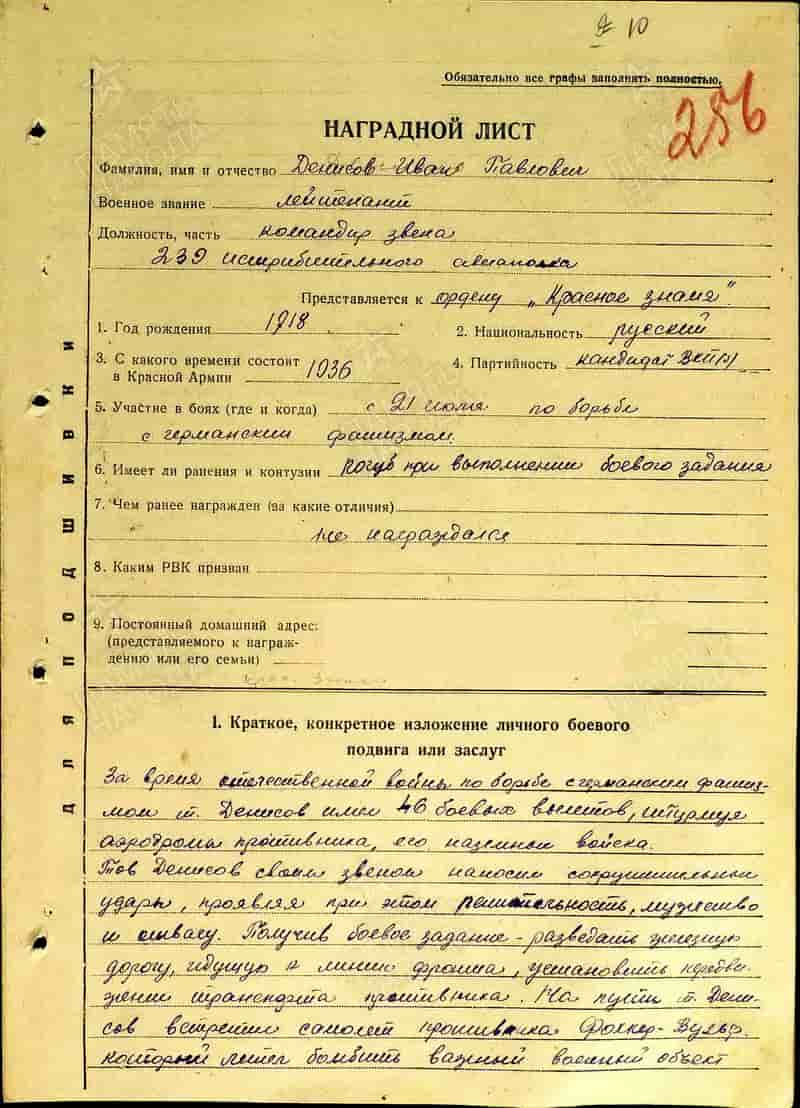 10
Обязательно все графы заполнять полностью.
256
НАГРАДНОЙ ЛИСТ
Фамилия, имя и отчество Денисов Иван Павлович
Военное звание лейтенант
Должность, часть командир звена
239 истребительного авиаполка
Представляется к ордену „Красное знамя".
1. Год рождения 1918
2. Национальность русский
3. С какого времени состоит
в Красной Армии 1936
4. Партийность кандидат ВКП(б)
5. Участие в боях (где и когда) с 21 июля по борьбе
с германским фашизмом.
6. Имеет ли ранения и контузии погиб при выполнении боевого задания
7. Чем ранее награжден (за какие отличия)
не награждался
8. Каким РВК призван
9. Постоянный домашний адрес:
(представляемого к награж-
дению или его семьи)
I. Краткое, конкретное изложение личного боевого
подвига или заслуг
За время отечественной войны по борьбе с германским фашиз-
мом т. Денисов имел 46 боевых вылетов, штурмуя
аэродромы противника, его наземные войска.
Тов Денисов своим звеном наносил сокрушительные
удары, проявляя при этом решительность, мужество
и отвагу. Получив боевое задание - разведать железную
дорогу, идущую к линии фронта, установить передви-
жение транспорта противника. На пути т. Дени-
сов встретил самолет противника Фоккер-Вульф,
который летел бомбить важный военный объект
ДЛЯ ПОДШИВКИ
ПАМЯТЬ НАРОДА